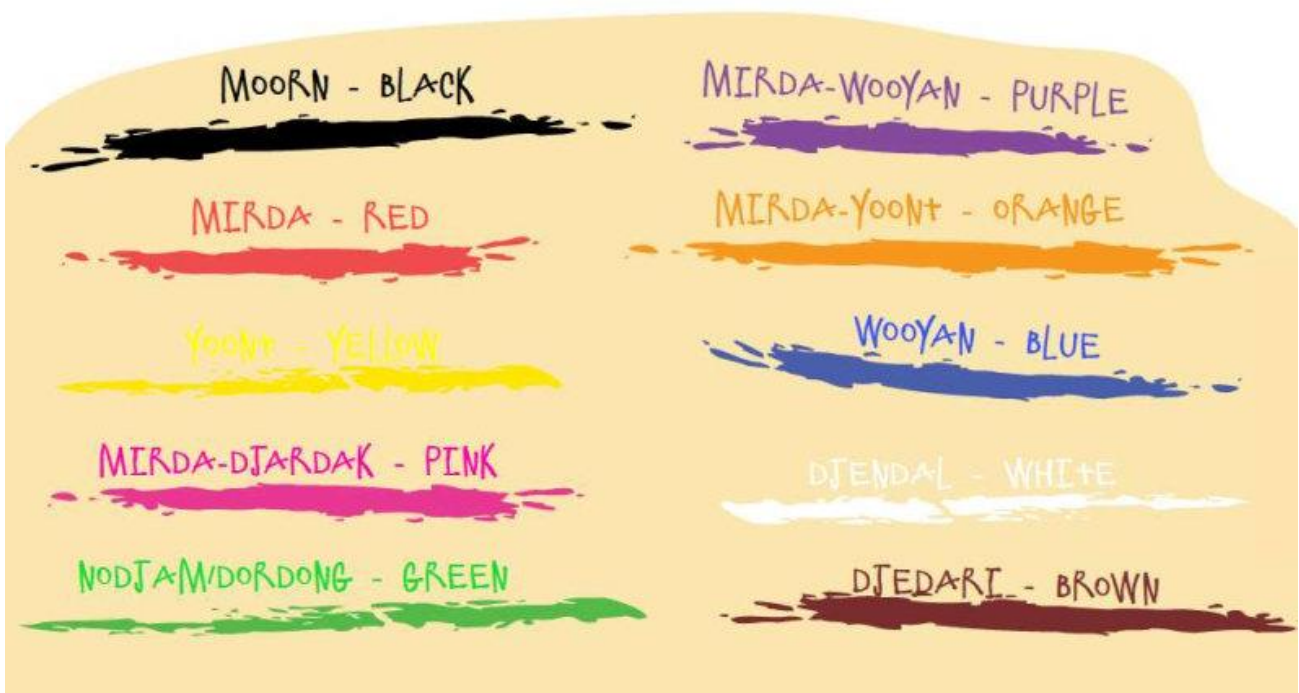 MOORN - BLACK
MIRDA - RED
YOONT - YELLOW
MIRDA-DJARDAK - PINK
NODJAM/DORDONG - GREEN
MIRDA-WOOYAN - PURPLE
MIRDA-YOONT - ORANGE
WOOYAN - BLUE
DJENDAL - WHITE
DJEDARI - BROWN